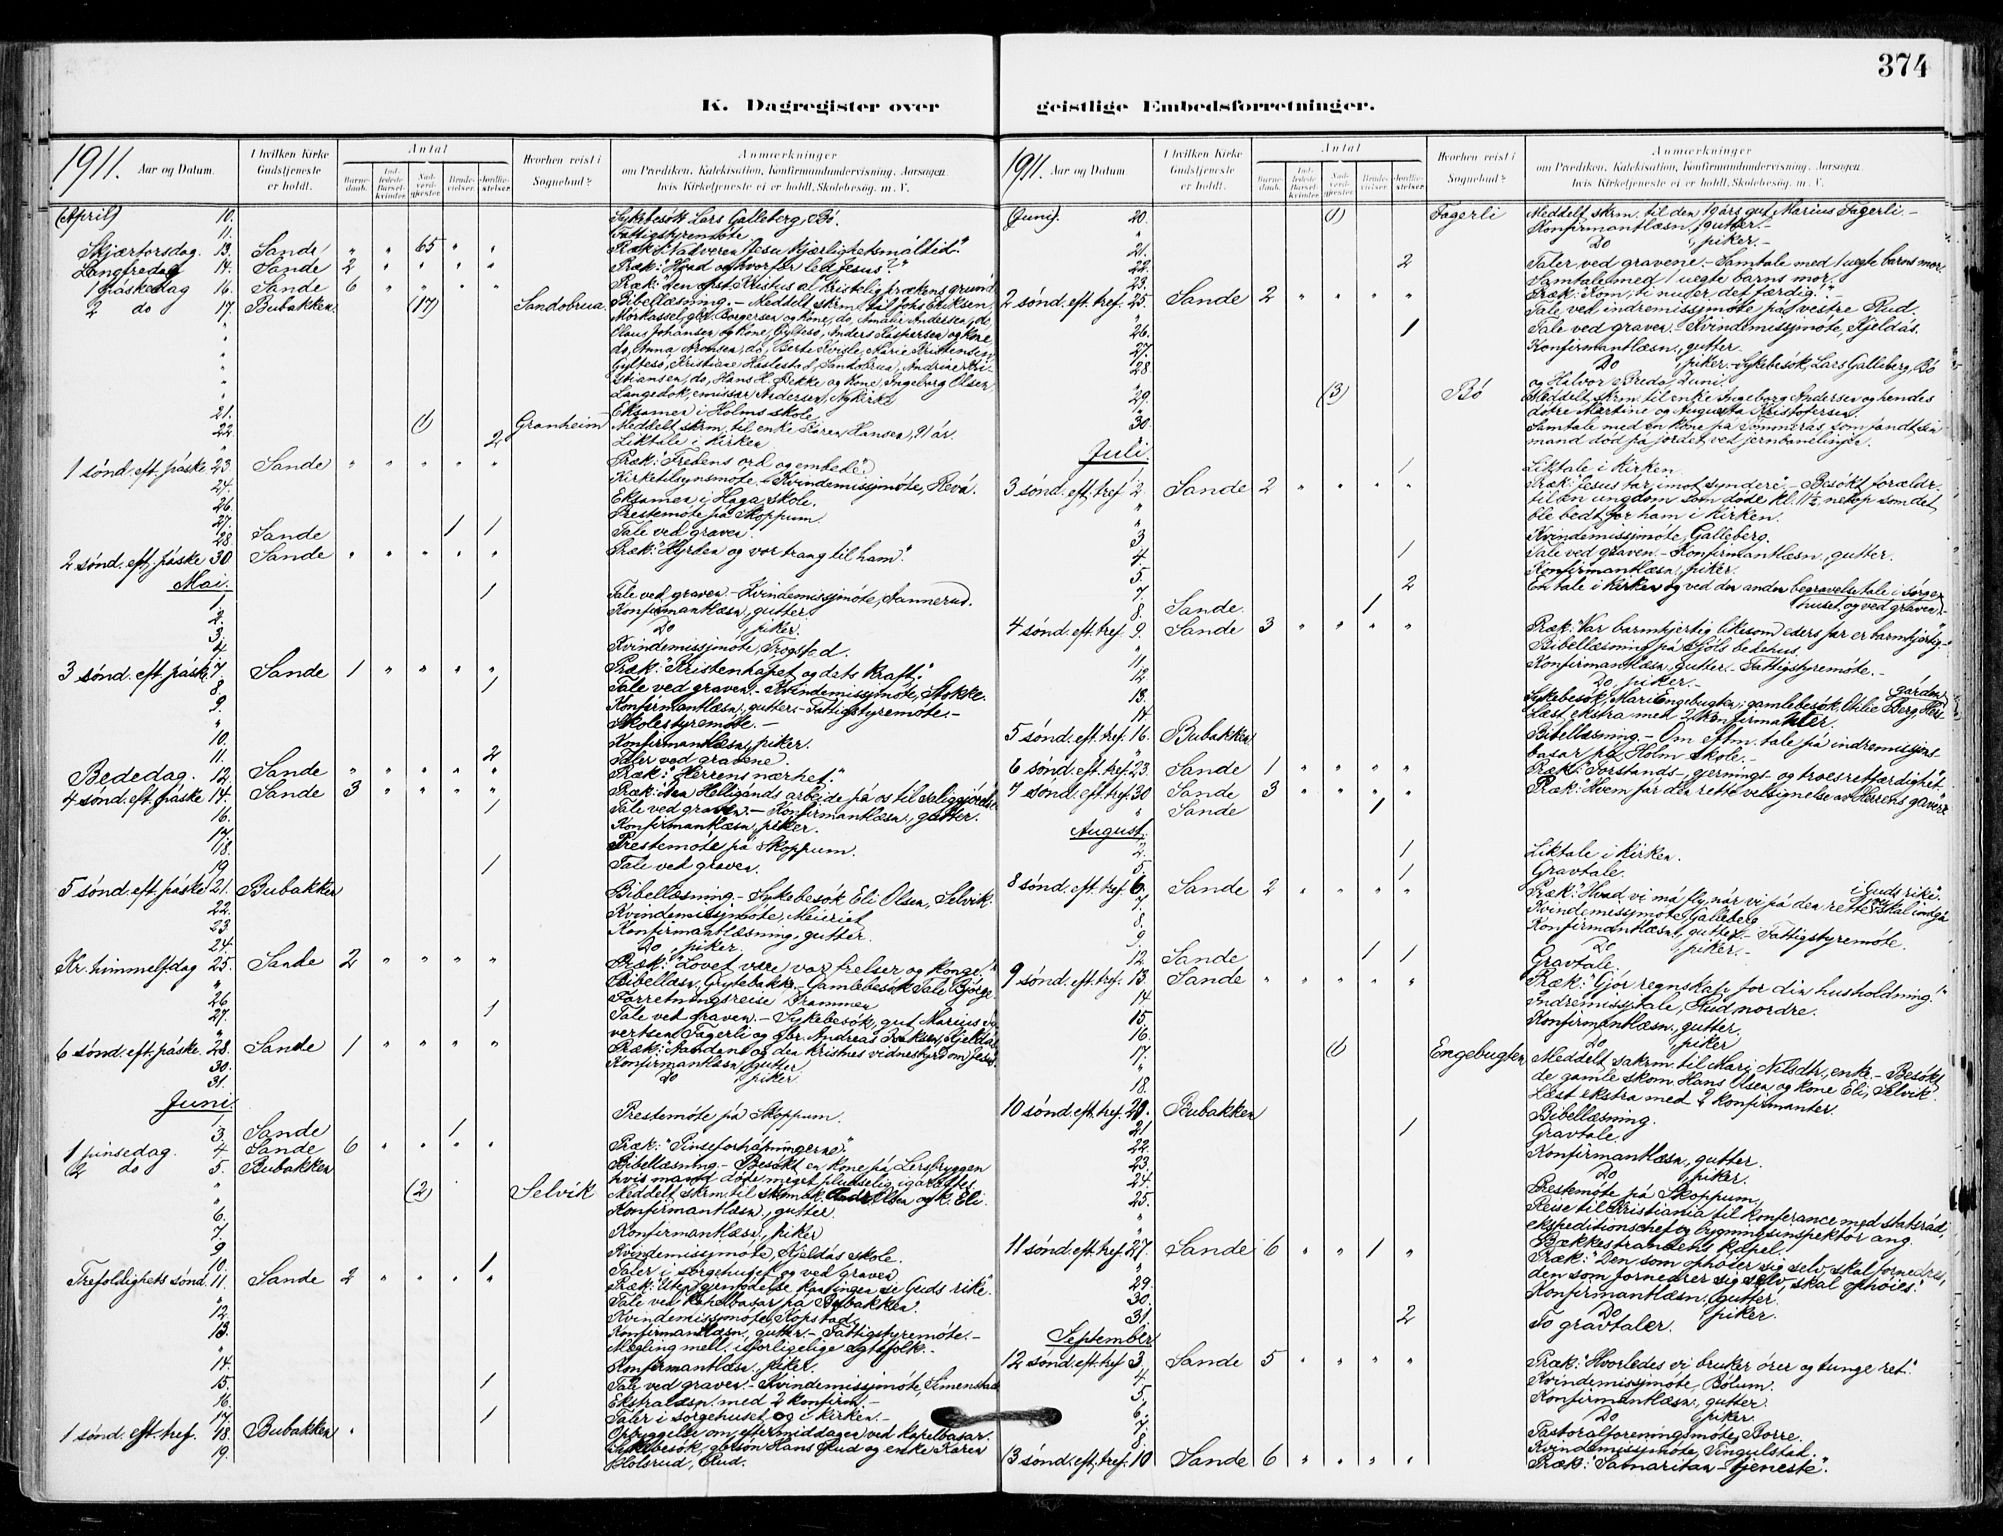 374
K. Dagregister over
1911. Aar og Datum.
I hvilken Kirke Gudstjeneste er holdt.
Antal
Barnedaab.
Indledede Barselkvinder.
Nadverdgjester.
Brudevielser.
Jordfæstelser.
Hvorhen reist i Sognebud?
Anmærkninger
om Prediken, Katekisation, Konfirmandundervisning, Aarsagen
hvis Kirketjeneste ei er holdt, Skolebesøg, m. V.
(April) 10. Sykebesøk Lars Galleberg, Bö.
11. Fattigstyremöte
Skjærtorsdag. 13. Sande " " 65 " " Præk: "Nadveren Jesu kjærlighetsmåltid."
Langfredag 14. Sande 2 " " " " Præk: "Hvad og hvorfor led Jesus?"
1 påskedag 16. Sande 6 " " " "
2 do 17. Bubakken. (17) Sandobrua. Bibellæsning. - Meddelt skrm. til Johs Eriksen,
Klaus Johansen og kone, Gyltesö, Anders Kaspersen og kone,
do, Anna Aronsen, do, Berte Kvisle, Marie Kristensen,
Gyltesö, Kristiane Haslestad, Sandobrua, Andrine Kri-
stiansen, do, Hans H. Bekke og kone, Ingeborg Olsen,
Langedok, emissær Andersen, Nykirke
21. Eksamen i Holms skole.
22. (1) Granheim Meddelt skrm. til enke Karen Hansen, 91 år.
" 2 Liktale i kirken
1 sönd. eft. påske 23. Sande " " " " " Præk: "Fredens ord og embede."
24. Kirketilsynsmöte. - Kvindemissjmöte, Revå.
26. Eksamen i Haga skole.
27. Prestemöte på Skoppum.
28 Sande 1 1 Tale ved graven.
2 sönd. eft. påske 30 Sande " " " " " Præk: "Hyrden og vor trang til ham."
Mai.
1. 1 Tale ved graven. - Kvindemissjmöte, Sannerud.
2. Konfirmantlæsn., gutter.
3. Do , piker.
4. Kvindemissjmöte, Trogstad.
3 sönd. eft. påske 7. Sande 1 " " " " Præk: "Kristenhapet og dets kraft."
8. 1 Tale ved graven. - Kvindemissjmöte, Stokke.
9. Konfirmantlæsn., gutter. - Fattigstyremöte. -
" Skolestyremöte. -
10. Konfirmantlæsn., piker.
11. 2 Taler ved gravene.
Bededag. 12. Sande " " " " " Præk: "Herrens nærhet."
4 sönd. eft. påske 14. Sande 3 " " " " Præk: "Den Helligånds arbeide på os til
16. 1 Tale ved graven. - Konfirmantlæsn., gutter.
17. Konfirmantlæsn., piker.
18. Prestemöte på Skoppum.
19. 1 Tale ved graven.
5 sönd. eft. påske 21. Bubakken Bibellæsning. - Sykebesök Eli Olsen, Selvik.
22. Kvindemissjmöte, Meieriet
23 Konfirmantlæsning, gutter.
24. Do , piker.
Kr. himmelfdag 25. Sande 2 " " " " Præk: "Lovet være vor frelser og konge!"
" Bibellæsn., Grytebakk. - Gamlebesök Tale Björge.
26. Forretningsreise Drammen
27. 1 Tale ved graven. - Sykebesök, gut Marius Sy-
vertsen Fagerli og gbr. Andreas Isaksen, Kjeldås.
6 sönd. eft. påske 28. Sande 1 " " " " Præk: "Aandens og den kristnes vidnesbyrd om Jesus."
30. Konfirmantlæsn., gutter
31. Do , piker.
Juni.
1. Prestemöte på Skoppum.
3. Sande 1
1 pinsedag. 4. Sande 6 " " " " Præk: "Pinseforhåpningerne."
2 do 5. Bubakken Bibellæsning. - Besökt en kone på Lersbryggen
hvis mand döde meget pludselig igår
" (2) Selvik Meddelt skrm. til skomak. Olsen og k. Eli.
6. Konfirmantlæsn., gutter.
7. Konfirmantlæsn., piker
9 Kvindemissjmöte, Kjeldås skole.
10. 1 Taler i sörgehuset og ved graven
Trefoldighets sönd. 11. Sande 2 " " " " Præk: "Uten gjenfödelse kan ingen se Guds rike."
" Tale ved kapelbasar på Bubakken.
12. Kvindemissjmöte, Kopstad.
13. Konfirmantlæsn., gutter. - Fattigstyremöte. -
" Mægling mell. uforligelige ægtefolk. -
14. Konfirmantlæsn., piker.
15. 1 Tale ved graven. - Kvindemissjmöte, Simenstad
16. Ekstralæsn. med 2 konfirm. -
17. 1 Taler i sörgehuset og i kirken. -
1 sönd. eft. tref. 18. Bubakken. Opbyggelse om eftermiddagen ved kapelbasar.
19. Sykebesök, gbrsön Hans Rud og enke Karen
Holsrud, Rud.
geistlige Embedsforretninger.
1911. Aar og Datum.
I hvilken Kirke Gudstjeneste er holdt.
Antal
Barnedaab.
Indledede Barselkvinder.
Nadverdgjester.
Brudevielser.
Jordfæstelser.
Hvorhen reist i Sognebud?
Anmærkninger
om Prediken, Katekisation, Konfirmandundervisning, Aarsagen
hvis Kirketjeneste ei er holdt, Skolebesøg, m. V.
(Juni). 20. (1) Fagerli Meddelt skrm. til den 19 års gut Marius Fagerli. -
" Konfirmantlæsn., gutter. -
21. Do , piker. -
22. 2 Taler ved gravene. - Samtale med 1 uegte barns mor.
23. Samtale med 1 uegte barns mor.
2 sönd. eft. tref. 25. Sande 2 " " " " Præk: "Kom, ti nu er det færdig!" -
" Tale ved indremissjmöte på vestre Rud.
26. 1 Tale ved graven. - Kvindemissjmöte, Kjeldås.
27. Konfirmantlæsn., gutter.
28. Do , piker. - Sykebesök, Lars Galleberg, Bö
" og Halvor Breda, Duni.
29. (3) Bö Meddelt skrm. til enke Ingeborg Andersen og hendes
" dötre Martine og Augusta Kristofersen.
30. Samtale med en kone på Sommerås som fandt sin
mand död på jordet, ved jernbanelinjen.
Juli.
1. 1 Liktale i kirken.
3 sönd. eft. tref. 2. Sande 2 " " " " Præk: "Jesus tar imot syndere". - Besökt foreldr.
" til en ungdom som döde kl. 11½ netop som det
" ble bedt for ham i kirken.
3 Kvindemissjmöte, Galleberg.
4. 1 Tale ved graven. - Konfirmantlæsn., gutter.
5. Konfirmantlæsn., piker.
7. 2 En tale i kirken og ved den anden begravelse tale i sörge-
8. Sande. 1 huset og ved graven.
4 sönd. eft. tref. 9. Sande 3 " " " " Præk: "Vær barmhjertig likesom eders far er barmhjertig."
" Bibellæsning på bedehus.
11. Konfirmantlæsn., gutter. - Fattigstyremöte. -
12. Do , piker. -
13. Sykebesök, Mari Engebugten; gamlebesök, Otilie Berg, Hers-
gården.
14. Læst ekstra med 2 konfirmanter.
5 sönd. eft. tref. 16. Bubakken Bibellæsning. - Om eftm. tale på indremissjons-
" basar på Holm skole. -
6 sönd. eft. tref. 23. Sande 1 " " " " Præk: "Forstands-, gjernings- og troesretfærdighet."
7 sönd. eft. tref. 30 Sande 3 " " " " Præk: "Hvem får den rette velsignelse av Herrens gaver?"
" Sande 1
August.
2. 1 Liktale i kirken.
5. 1 Gravtale.
8 sönd. eft. tref. 6. Sande 2 " " " " Præk: "Hvad vi må fly, når vi på den rette vei skal indgå i Guds rike."
7. Kvindemissjmöte, Galleberg
8. Konfirmantlæsn., gutter. - Fattigstyremöte.
9 Do , piker. -
12. Sande 1 1 Gravtale.
9 sönd. eft. tref. 13. Sande " " " " " Præk: "Gjör regnskap for din husholdning!"
14. Indremissjtale, Rud nordre.
15. Konfirmantlæsn., gutter,
16. Do , piker
17. (1) Engebugten Meddelt sakrm. til Mari Nilsdtr., enke. - Besökt
" de gamle skom. Hans Olsen og kone Eli, Selvik.
18. Læst ekstra med 2 konfirmanter.
10 sönd. eft. tref. 20. Bubakken Bibellæsning.
21 1 Gravtale.
22. Konfirmantlæsn., gutter.
23. Do , piker.
24. Prestemöte på Skoppum,
25. Reise til Kristiania til konferance med statsråd,
" ekspeditionschef og bygningsinspektör ang.
Bækkestrandens kapel.
11 sönd. eft. tref. 27. Sande 6 " " 1 " Præk: "Den som ophöier sig selv, skal fornedres,
" den som fornedrer sig selv, skal ophöies."
29. Konfirmantlæsn., gutter.
30. Do , piker.
31. 2 To gravtaler.
September
12 sönd. eft. tref. 3. Sande 5 " " " " Præk: "Hvorledes vi bruker örer og tunge ret."
4. Kvindemissjmöte, Bölum.
5. Konfirmantlæsn., gutter
6. Do , piker.
7. Pastoralforeningsmöte, Borre.
8. Kvindemissjmöte, Tingulstad.
13 sönd. eft. tref. 10 Sande 6 " " " " Præk: "Samaritan-tjeneste".